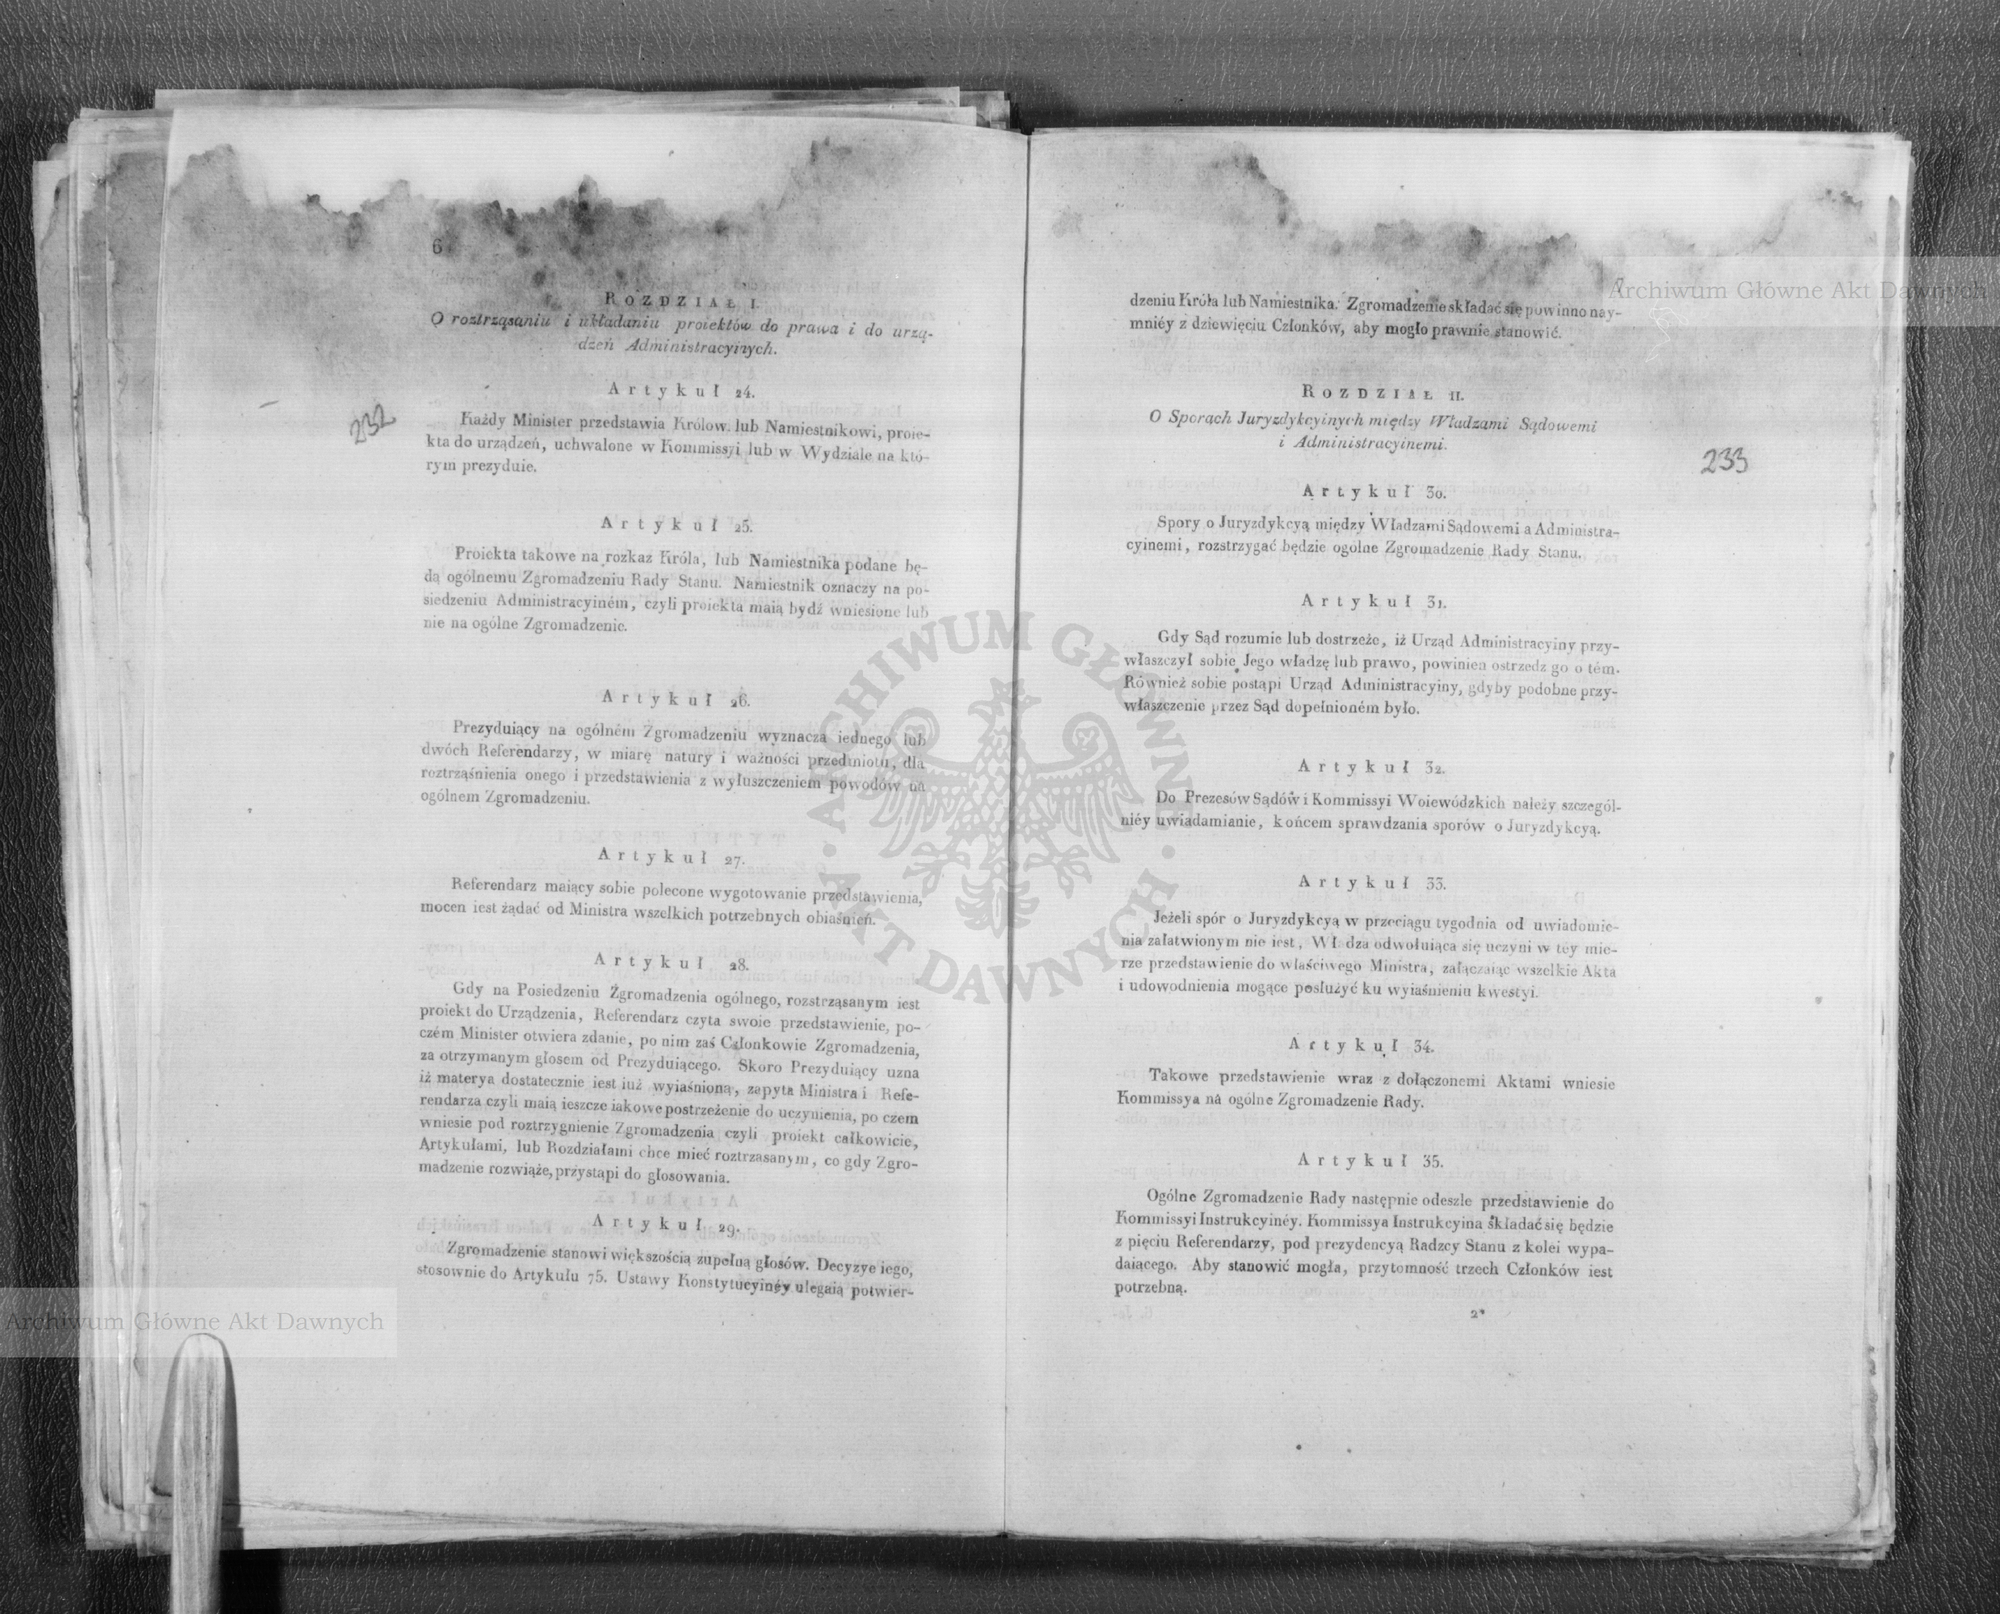 6
ROZDZIAŁ I.
O roztrząsaniu i układaniu proiektów do prawa i do urzą-
dzeń Administracyinych.
Artykuł 24.
232
Każdy Minister przedstawia Królow. lub Namiestnikowi, proie-
kta do urządzeń, uchwalone w Kommissyi lub w Wydziale na któ-
rym prezyduie.
Artykuł 25.
Proiekta takowe na rozkaz Króla, lub Namiestnika podane bę-
dą ogólnemu Zgromadzeniu Rady Stanu. Namiestnik oznaczy na po-
siedzeniu Administracyiném, czyli proiekta maią bydź wniesione lub
nie na ogólne Zgromadzenie.
Artykuł 26.
Prezyduiący na ogólném Zgromadzeniu wyznacza iednego lub
dwóch Referendarzy, w miarę natury i ważności przedmiotu, dla
roztrząśnienia onego i przedstawienia z wyłuszczeniem powodów na
ogólném Zgromadzeniu.
Artykuł 27.
Referendarz maiący sobie polecone wygotowanie przedstawienia,
mocen iest żądać od Ministra wszelkich potrzebnych obiaśnień.
Artykuł 28.
Gdy na Posiedzeniu Zgromadzenia ogólnego, rozstrząsanym iest
proiekt do Urządzenia, Referendarz czyta swoie przedstawienie, po-
czém Minister otwiera zdanie, po nim zaś Członkowie Zgromadzenia,
za otrzymanym głosem od Prezyduiącego. Skoro Prezyduiący uzna
iż materya dostatecznie iest iuż wyiaśnioną, zapyta Ministra i Refe-
rendarza czyli maią ieszcze iakowe postrzeżenie do uczynienia, po czem
wniesie pod roztrzygnienie Zgromadzenia czyli proiekt całkowicie,
Artykułami, lub Rozdziałami chce mieć roztrzasanym, co gdy Zgro-
madzenie rozwiąże, przystąpi do głosowania.
Artykuł 29.
Zgromadzenie stanowi większością zupełną głosów. Decyzye iego,
stosownie do Artykułu 75. Ustawy Konstytucyinéy ulegaią potwier-
dzeniu Króla lub Namiestnika. Zgromadzenie składać się powinno nay-
mniéy z dziewięciu Członków, aby mogło prawnie stanowić.
ROZDZIAŁ II.
O Sporach Juryzdykcyinych między Władzami Sądowemi
i Administracyinemi.
233
Artykuł 30.
Spory o Juryzdykcyą między Władzami Sądowemi a Administra-
cyinemi, rozstrzygać będzie ogolne Zgromadzenie Rady Stanu.
Artykuł 31.
Gdy Sąd rozumie lub dostrzeże, iż Urząd Administracyiny przy-
właszczył sobie Jego władzę lub prawo, powinien ostrzedz go o tém.
Również sobie postąpi Urząd Administracyiny, gdyby podobne przy-
właszczenie przez Sąd dopełnioném było.
Artykuł 32.
Do Prezesów Sądów i Kommissyi Woiewódzkich należy szczegól-
niéy uwiadamianie, końcem sprawdzania sporów o Juryzdykcyą.
Artykuł 33.
Jeżeli spór o Juryzdykcyą w przeciągu tygodnia od uwiadomie-
nia załatwionym nie iest, Wł dza odwołuiąca się uczyni w téy mie-
rze przedstawienie do właściwego Ministra, załączaiąc wszelkie Akta
i udowodnienia mogące posłużyć ku wyiaśnieniu kwestyi.
Artykuł 34.
Takowe przedstawienie wraz z dołączonemi Aktami wniesie
Kommissya na ogólne Zgromadzenie Rady.
Artykuł 35.
Ogólne Zgromadzenie Rady następnie odeszle przedstawienie do
Kommissyi Instrukcyinéy. Kommissya Instrukcyina składać się będzie
z pięciu Referendarzy, pod prezydencyą Radzcy Stanu z kolei wypa-
daiącego. Aby stanowić mogła, przytomność trzech Członków iest
potrzebną.
2*
Archiwum Główne Akt Dawnych
Archiwum Główne Akt Dawnych
ARCHIWUM GŁÓWNE · AKT DAWNYCH ·